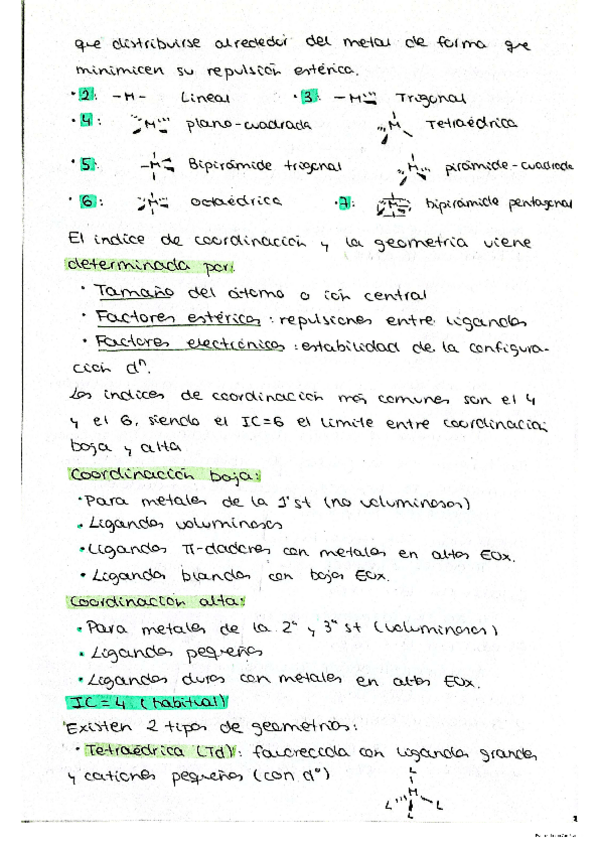 que distribuirse alrededor del metal de forma que
minimicen su repulsión estérica.
· 2: -M- Lineal · 3: -M Trigonal
· 4: M plano-cuadrada M Tetraédrica
· 5: -M Bipirámide trigonal M pirámide-cuadrada
· 6: M octaédrica · 7: M bipirámide pentagonal
El índice de coordinación y la geometría viene
determinada por:
· Tamaño del átomo o ión central
· Factores estéricos: repulsiones entre ligandos
· Factores electrónicos: estabilidad de la configura-
ción dⁿ.
Los índices de coordinación más comunes son el 4
y el 6, siendo el IC=6 el límite entre coordinación
baja y alta
Coordinación baja:
· Para metales de la 1ª st (no voluminosos)
· Ligandos voluminosos
· Ligandos π-dadores con metales en altos EOx.
· Ligandos blandos con bajos EOx.
Coordinación alta:
· Para metales de la 2ª y 3ª st (voluminosos)
· Ligandos pequeños
· Ligandos duros con metales en altos EOx.
IC=4 (habitual)
Existen 2 tipos de geometrías:
· Tetraédrica (Td): favorecida con ligandos grandes
y cationes pequeños (con d⁰)
L
M
L L
L